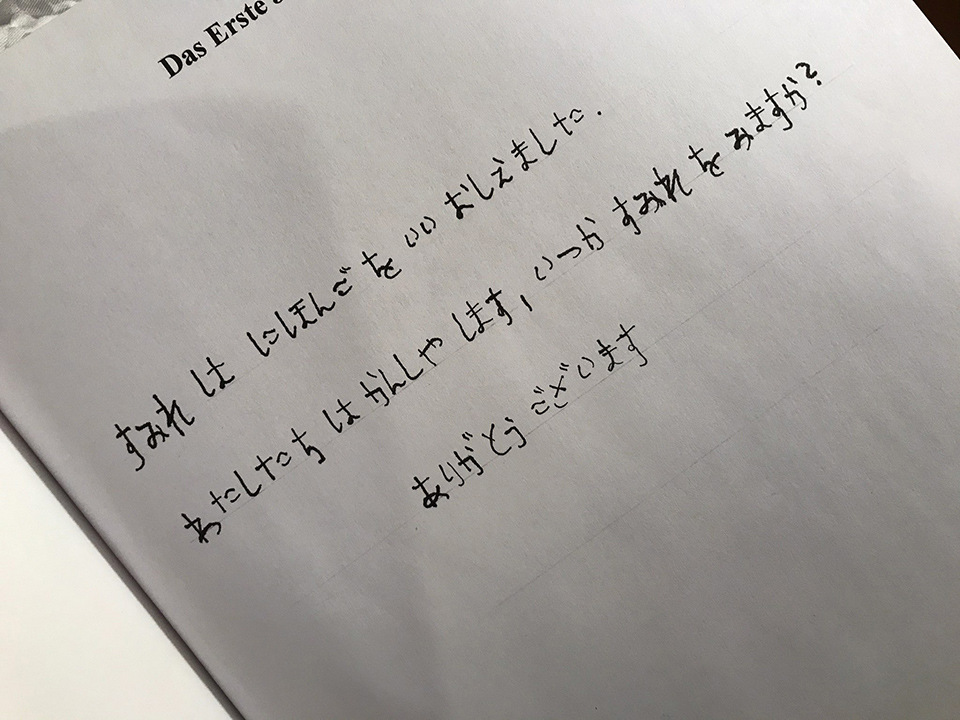 Das Erste
すみれ は にほんご を いい おしえました.
わたしたち は かんしゃ します, いつか すみれ を みますか?
ありがとう ございます